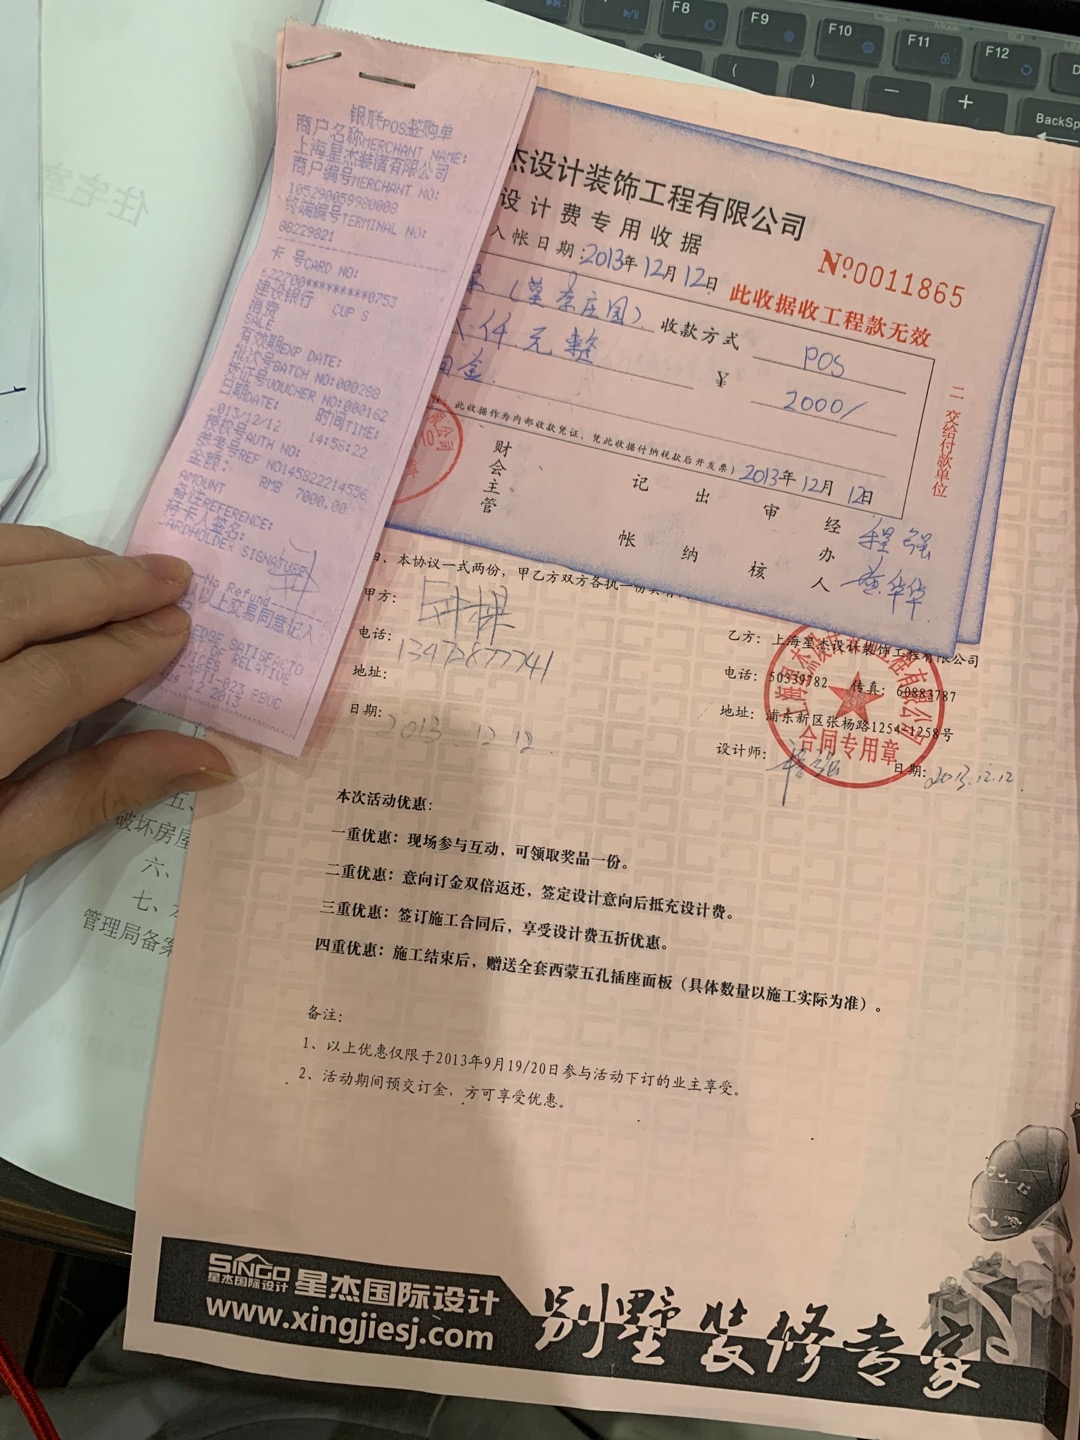 F8
F9
F10
F11
F12
BackSp
住宅室
银联POS签购单
商户名称MERCHANT NAME:
上海星杰装潢有限公司
商户编号MERCHANT NO:
105290059980008
终端编号TERMINAL NO:
88229821
卡 号CARD NO:
622700*********0753
建设银行 CUP S
消费
SALE
有效期EXP DATE:
批次号BATCH NO:000288
凭证号VOUCHER NO:000162
日期DATE: 时间TIME:
2013/12/12 14:56:22
授权号AUTH NO:
参考号REF NO145822214556
金额:
AMOUNT RMB 7000.00
备注REFERENCE:
持卡人签名:
CARDHOLDER SIGNATURE
No Refund
认以上交易同意记入
杰设计装饰工程有限公司
设计费专用收据
入帐日期:2013年12月12日
№0011865
此收据收工程款无效
收款方式 POS
仟元整
¥ 2000/
此收据作为内部收款凭证,凭此收据付纳税款后开发票)
2013年12月12日
二 交给付款单位
财会主管
记帐
出纳
审核
经办人
程强
黄华华
四、本协议一式两份,甲乙方双方各执一份
甲方:
电话:13472877741
地址:
日期:2013 12 12
乙方:上海星杰设计装饰工程有限公司
电话:50339782 传真:60883787
地址:浦东新区张杨路1254-1258号
设计师:程强 日期:2013.12.12
合同专用章
本次活动优惠:
一重优惠:现场参与互动,可领取奖品一份。
二重优惠:意向订金双倍返还,签定设计意向后抵充设计费。
三重优惠:签订施工合同后,享受设计费五折优惠。
四重优惠:施工结束后,赠送全套西蒙五孔插座面板(具体数量以施工实际为准)。
备注:
1、以上优惠仅限于2013年9月19/20日参与活动下订的业主享受。
2、活动期间预交订金,方可享受优惠。
五、
破坏房屋
六、
七、
管理局备案
SINGO
星杰国际设计
星杰国际设计
www.xingjiesj.com
别墅装修专家